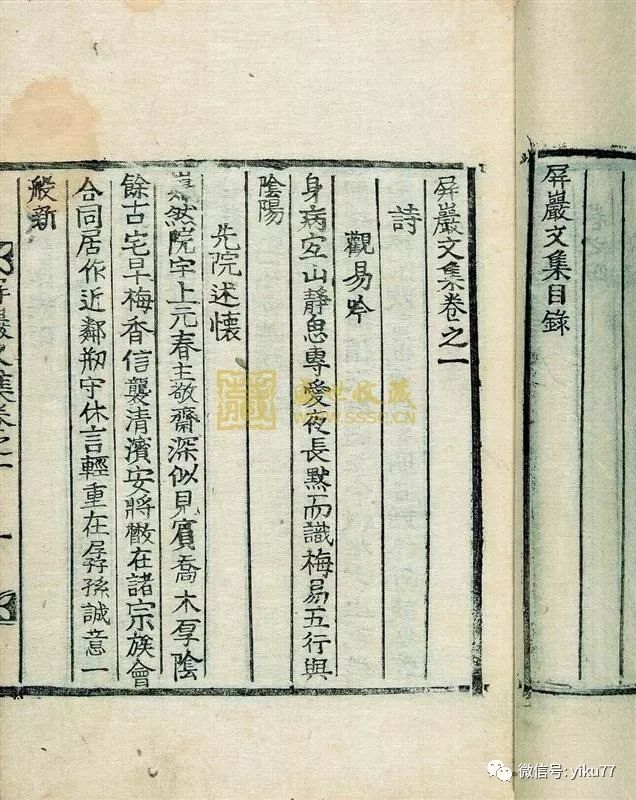 屛巖文集目錄
屛巖文集卷之一
詩
觀易吟
身病宐山靜思專愛夜長默而識梅易五行與
陰陽
先院述懷
然院宇上元春主敬齋深似見賓喬木厚陰
餘古宅早梅香信襲清濱安將散在諸宗族會
合同居作近鄰剏守休言輕重在孱孫誠意一
般新
屛巖文集卷之一
一
盛世收藏
WWW.SSSC.CN
微信号: yiku77